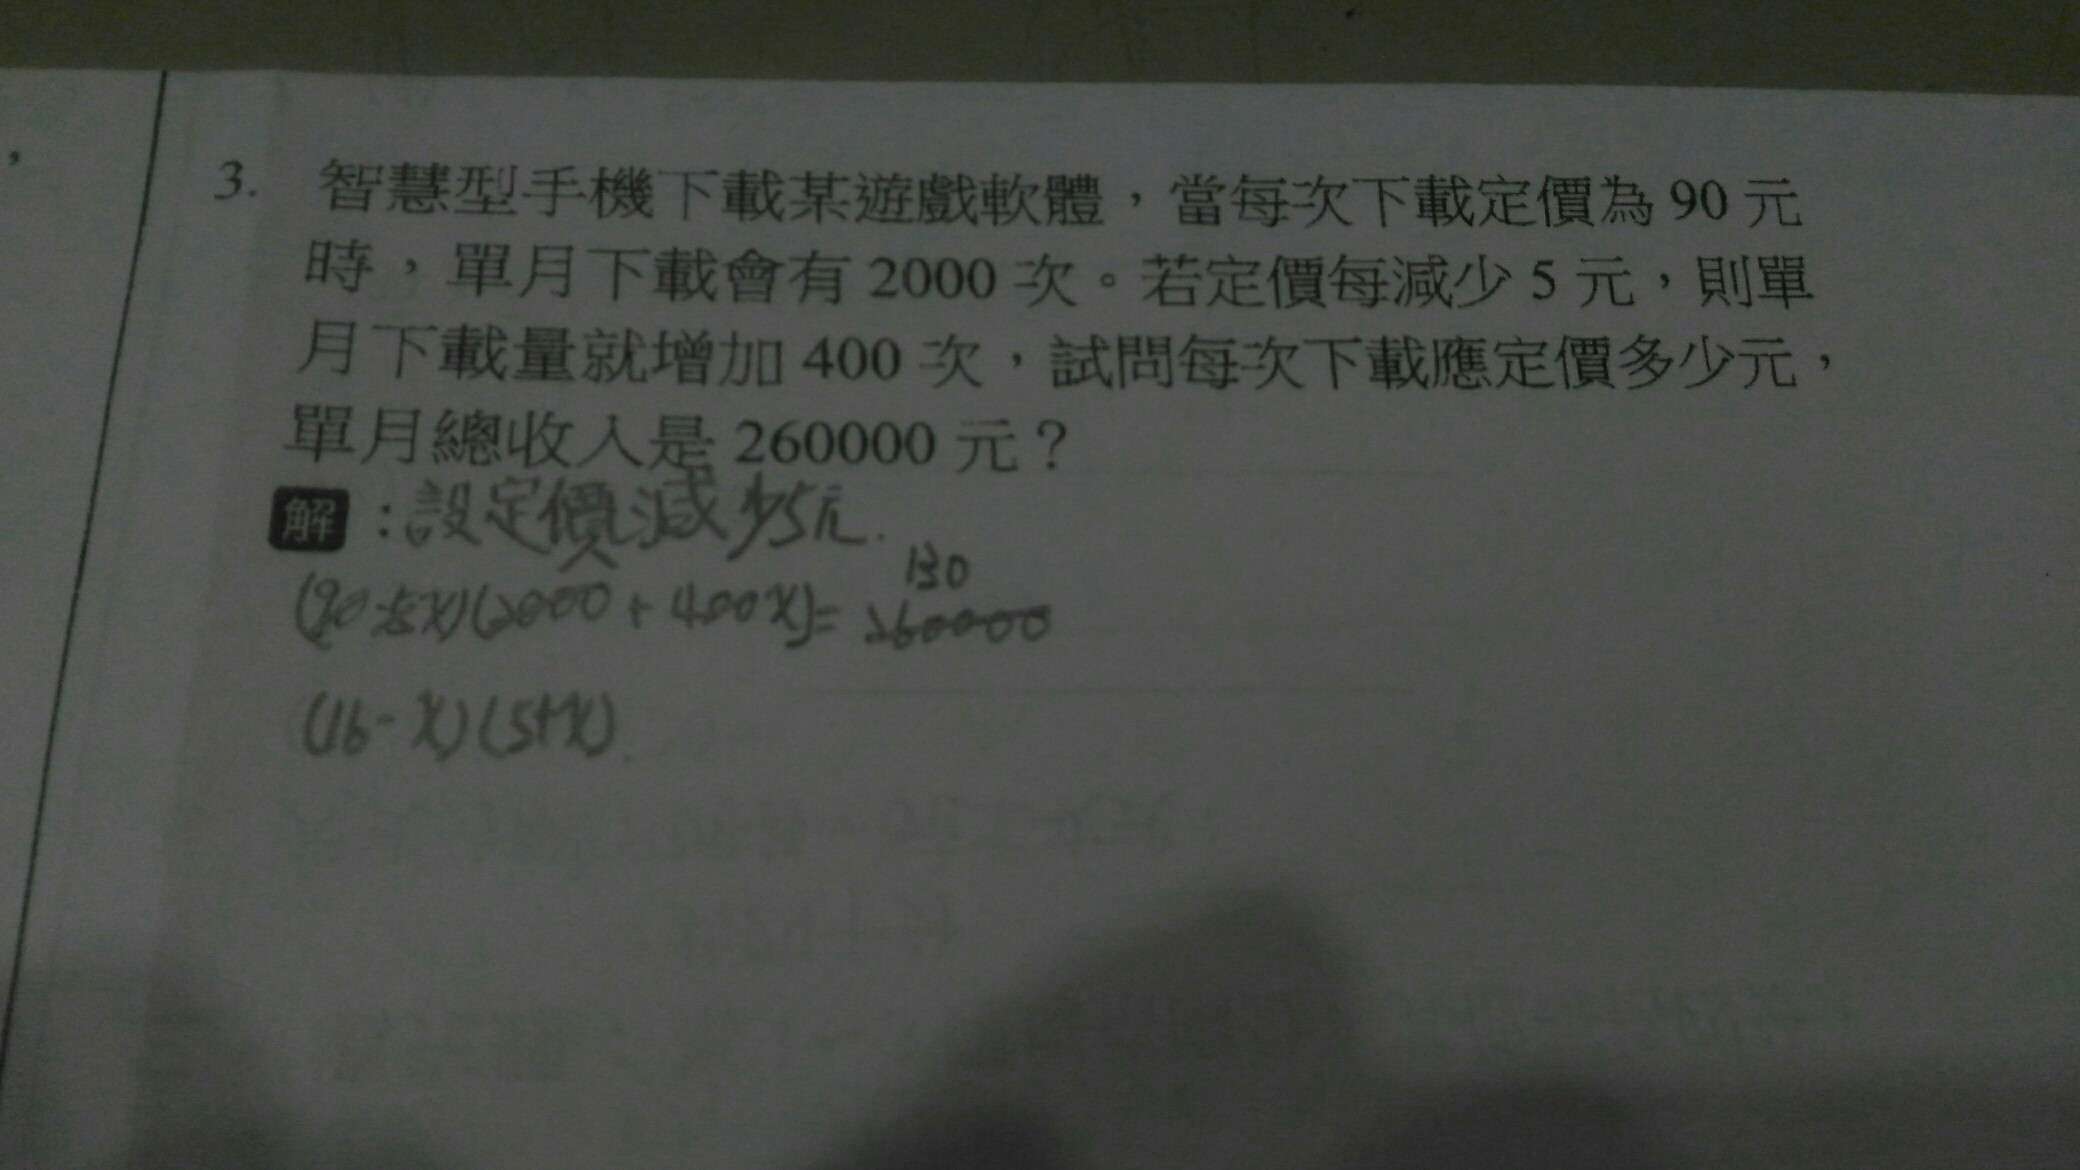 3. 智慧型手機下載某遊戲軟體，當每次下載定價為 90 元
時，單月下載會有 2000 次。若定價每減少 5 元，則單
月下載量就增加 400 次，試問每次下載應定價多少元，
單月總收入是 260000 元？
解：設定價減少5元.
130
(90-5x)(2000+400x)=260000
(16-x)(5+x)